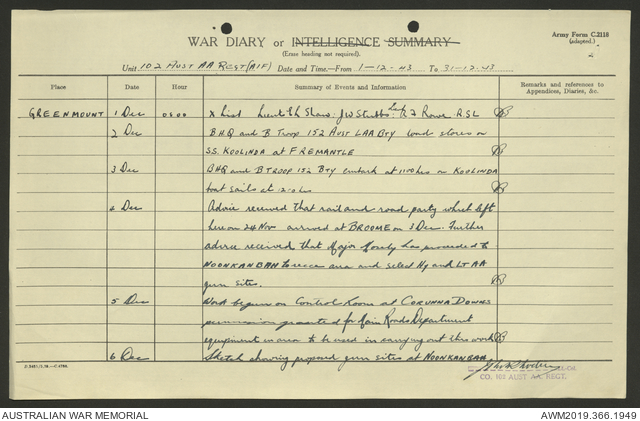 Army Form C.2118
(adapted.)
2
WAR DIARY or INTELLIGENCE SUMMARY
(Erase heading not required).
Unit 102 AUST AA REGT (AIF) Date and Time.—From 1-12-43 To 31-12-43
Place Date Hour Summary of Events and Information Remarks and references to Appendices, Diaries, &c.
GREENMOUNT 1 Dec 0500 X List Lieut Shaw. J W Stubbs. R J Rowe. RSL
2 Dec BHQ and B Troop 152 Aust LAA Bty load stores on
S.S. KOOLINDA at FREMANTLE
3 Dec BHQ and B TROOP 152 Bty embark at 1100 hrs on KOOLINDA
boat sails at hrs
4 Dec Advice received that rail and road party which left
here on 24 Nov arrived at BROOME on 3 Dec. Further
advice received that Major has proceeded to
NOONKANBAH to recce area and select Hy and LT AA
gun sites.
5 Dec Work begun on Control Room at CORUNNA DOWNS
permission granted for Main Roads Department
equipment in area to be used in carrying out this work
6 Dec Sketch showing proposed gun sites at NOONKANBAH
LT-COL
CO. 102 AUST AA. REGT.
AUSTRALIAN WAR MEMORIAL
AWM2019.366.1949